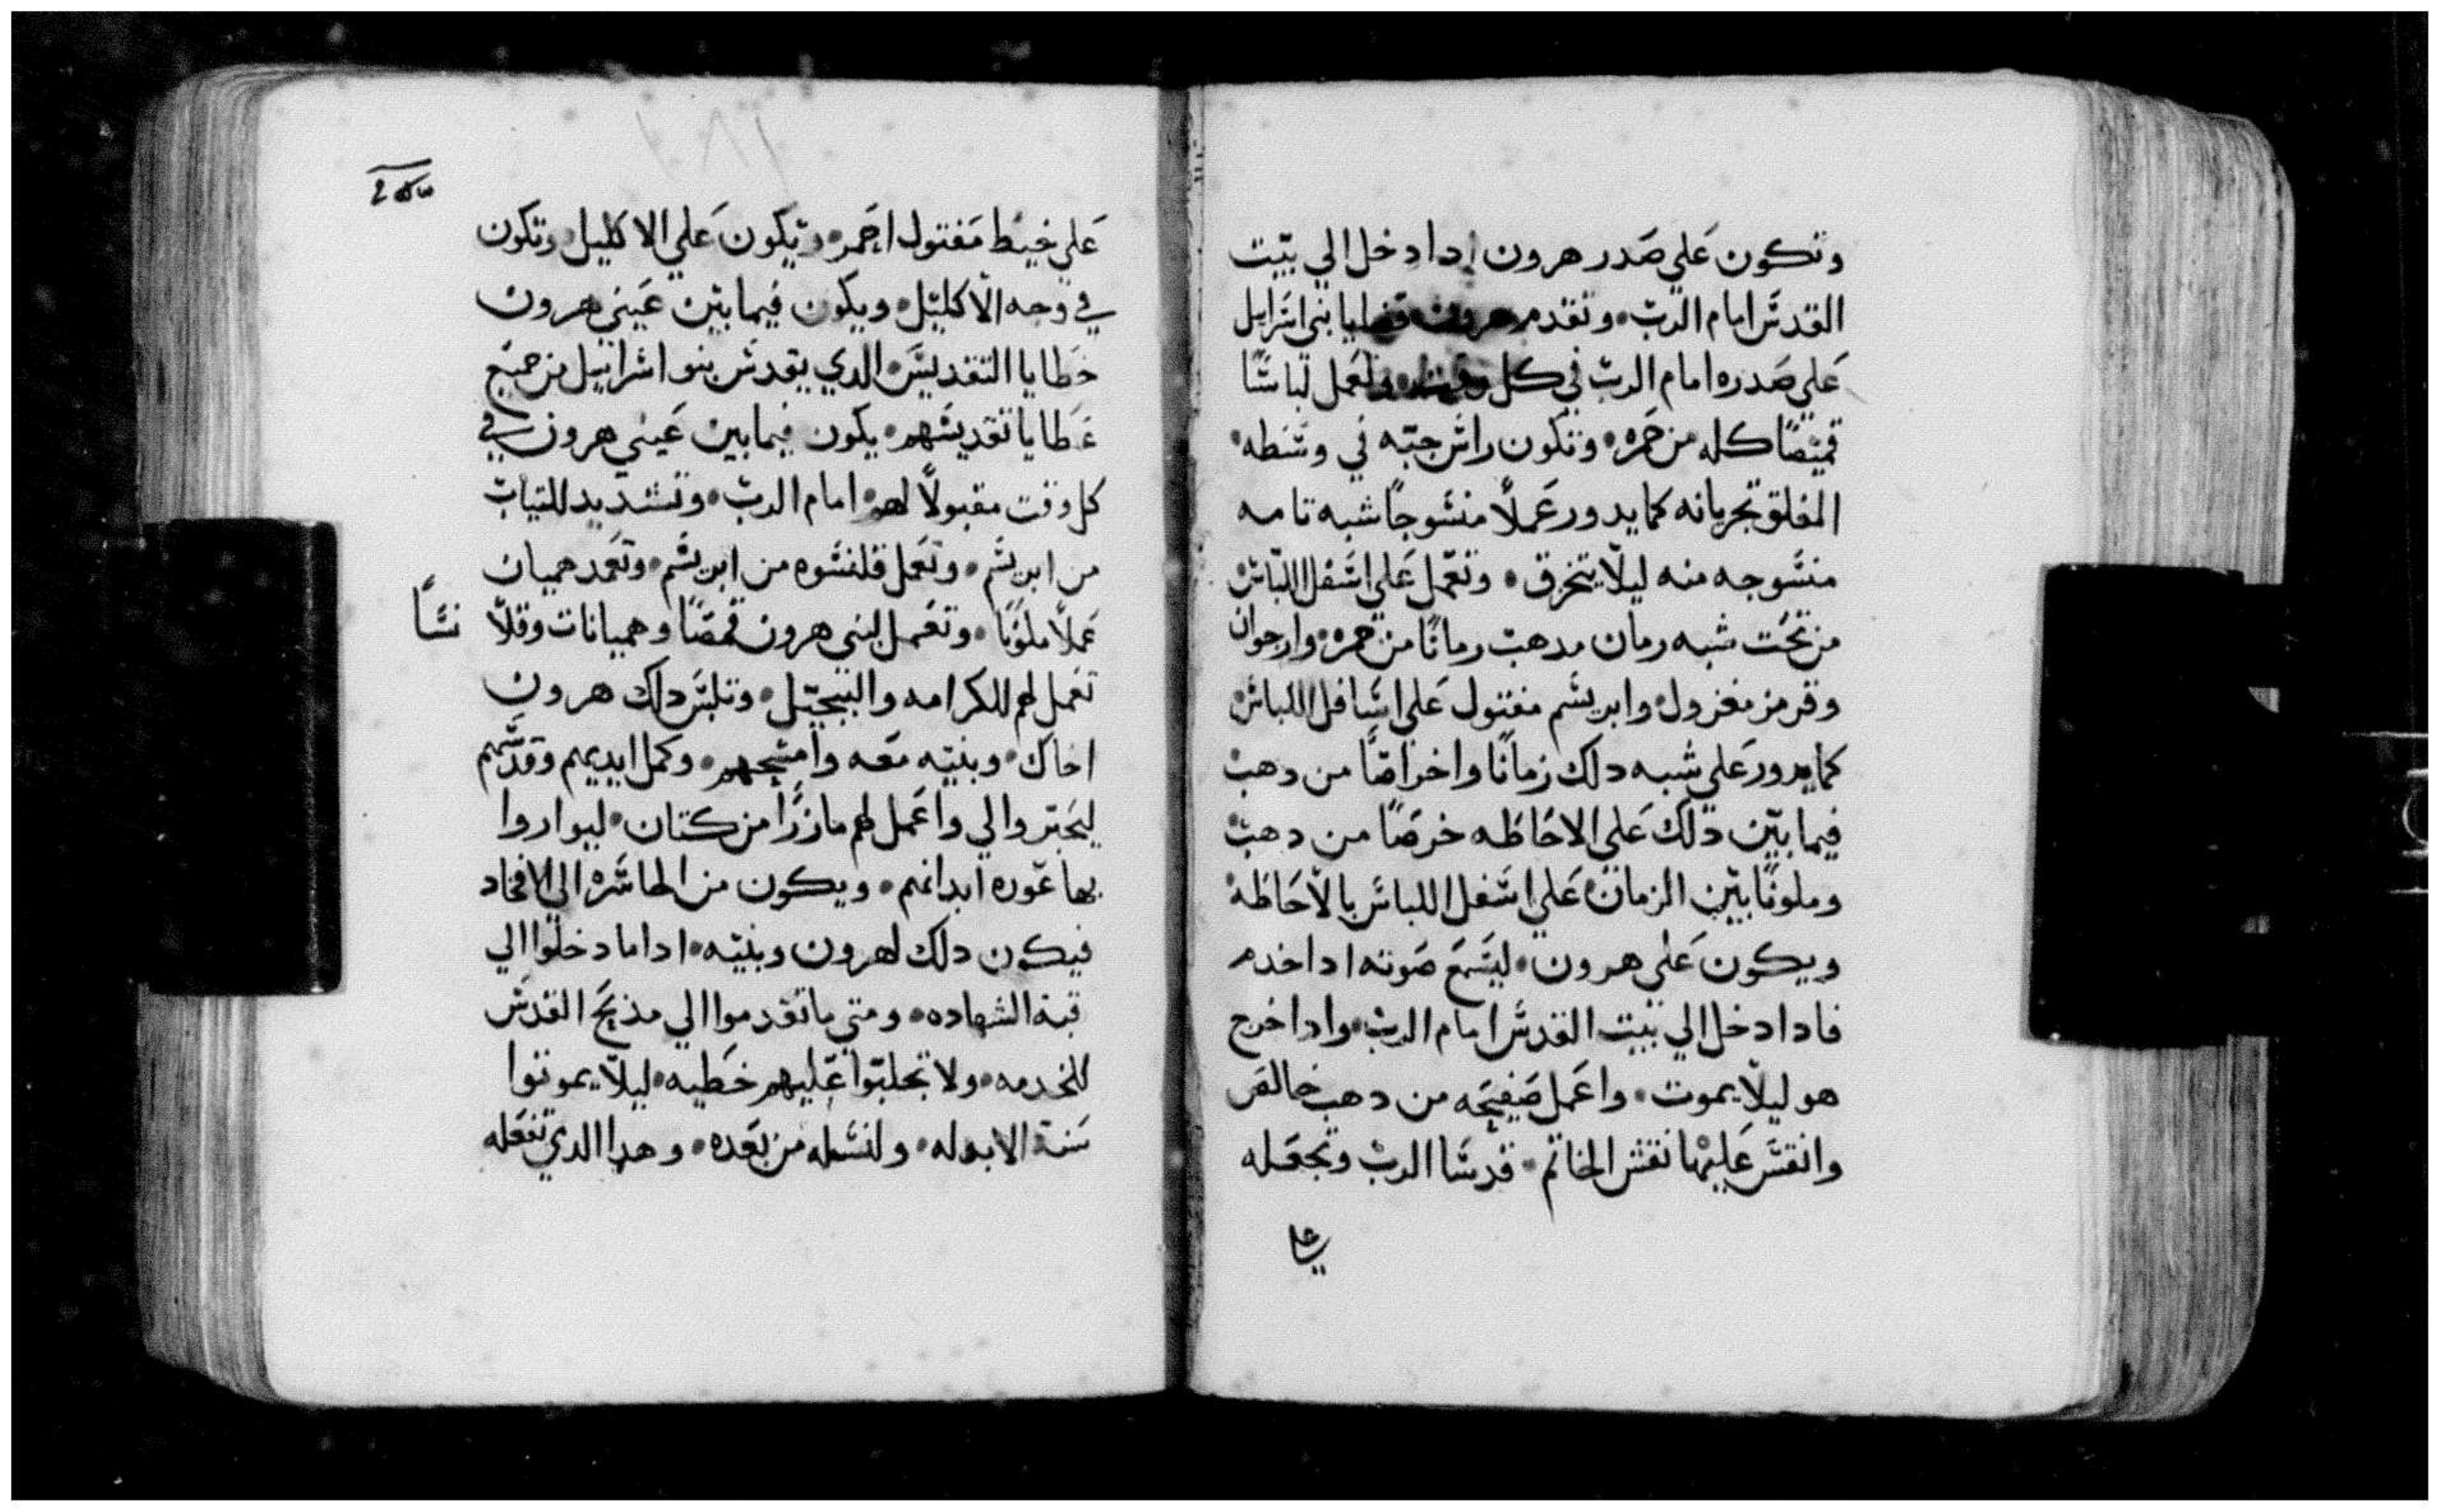 وتكون على صدر هرون ادا دخل الي بيت
القدس امام الرب وتقدم هرون قضايا بني اسرايل
على صدره امام الرب في كل وقت وتعمل لباسًا
قميصًا كله من حمره وتكون راس جبته في وسطه
المفلق بحربانه كما يدور عملًا منسوجًا شبه تامه
منسوجه منه ليلا يتخرق وتعمل علي اسفل اللباس
من تحت شبه رمان مدهب رمانًا من حمره وارجوان
وقرمز مغزول وابريسم مفتول علي اسافل اللباس
كما يدور على شبه دلك زمانًا واخراصًا من دهب
فيما بين دلك على الاحاطه خرصًا من دهب
وملونًا بين الزمان علي اسفل اللباس بالاحاطه
ويكون على هرون ليسمع صوته ادا خدم
فادا دخل الي بيت القدس امام الرب وادا خرج
هو ليلا يموت واعمل صفيحه من دهب خالص
وانقش عليها نقش الخاتم قدسا الرب وتجعله
على
على خيط مفتول احمر ويكون علي الاكليل وتكون
في وجه الاكليل ويكون فيما بين عيني هرون
خطايا التقديس الدي يقدس بنو اسراييل من جميع
عطايا تقديسهم يكون فيما بين عيني هرون في
كل وقت مقبولًا لهم امام الرب وتشديد للتياب
من ابريسم وتعمل قلنسوه من ابريسم وتعمد هميان
عملًا ملونًا وتعمل لبني هرون قمصًا وهميانات وقلا نسًا
تعمل لهم للكرامه والتبجيل وتلبس دلك هرون
اخاك وبنيه معه وامسحهم وكمل ايديهم وقدسهم
ليحبروا لي واعمل لهم مازرًا من كتان ليواروا
بها عوره ابدانهم ويكون من الحاشره الي الافخاد
فيكون دلك لهرون وبنيه ادا ما دخلوا الي
قبة الشهاده ومتي ما تقدموا الي مذبح القدس
للخدمه ولا تجلبوا عليهم خطيه ليلا يموتوا
سنة الابد له ولنسله من بعده وهدا الدي تفعله